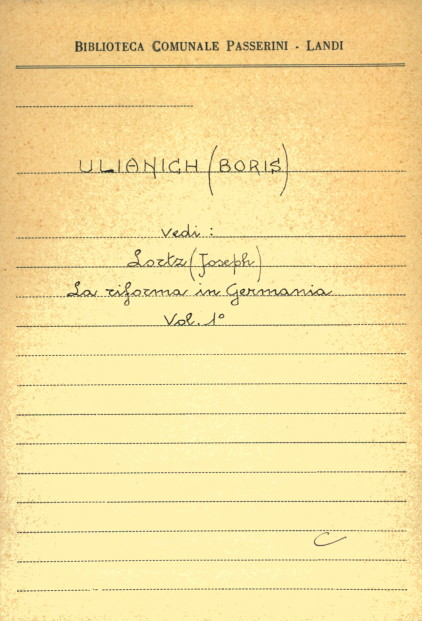 BIBLIOTECA COMUNALE PASSERINI - LANDI
ULIANICH (BORIS)
vedi :
Lortz (Joseph)
La riforma in Germania
Vol. 1°
C